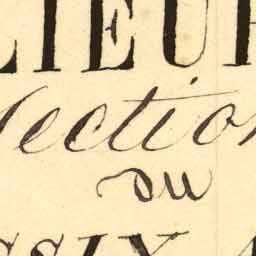 LIEUR
lection
du
SSIX A